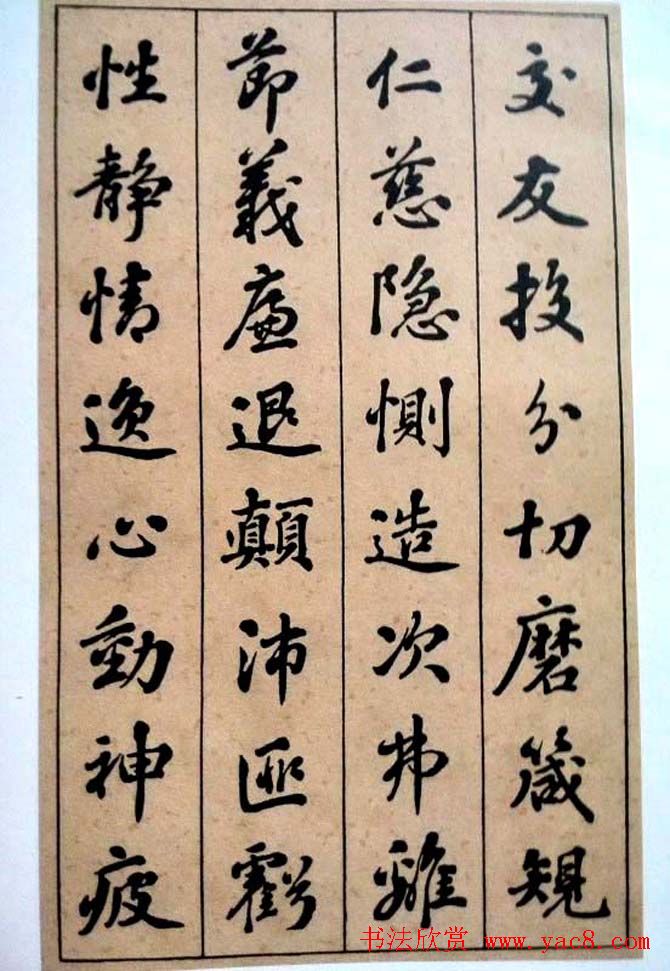 交友投分切磨箴規
仁慈隐惻造次弗離
節義廉退顛沛匪虧
性静情逸心動神疲
书法欣赏 www.yac8.com